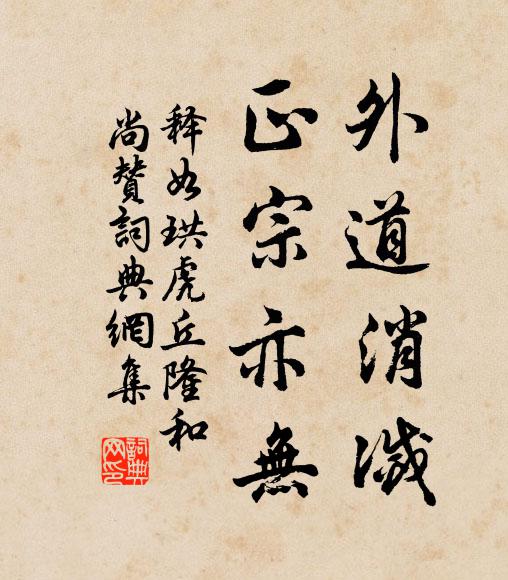 外道消滅
正宗亦無
释如珙虎丘隆和
尚赞詞典網集
詞典網印